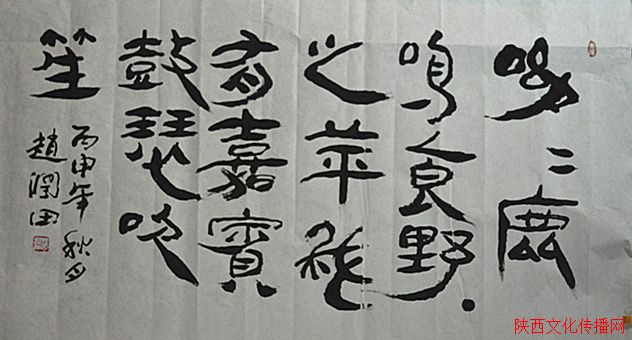 呦〻鹿
鳴食野
之苹我
有嘉賓
鼓瑟吹
笙
丙申年秋月
趙潤田
陕西文化传播网